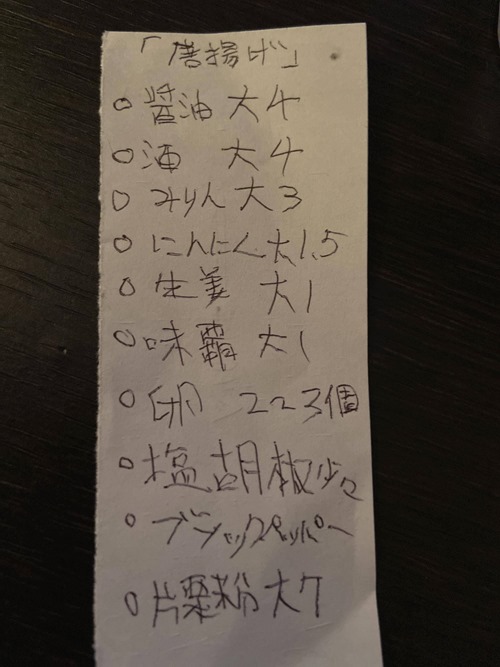 「唐揚げ」
○醤油 大4
○酒 大4
○みりん 大3
○にんにく 大1.5
○生姜 大1
○味覇 大1
○卵 2〜3個
○塩胡椒少々
○ブラックペッパー
○片栗粉 大7